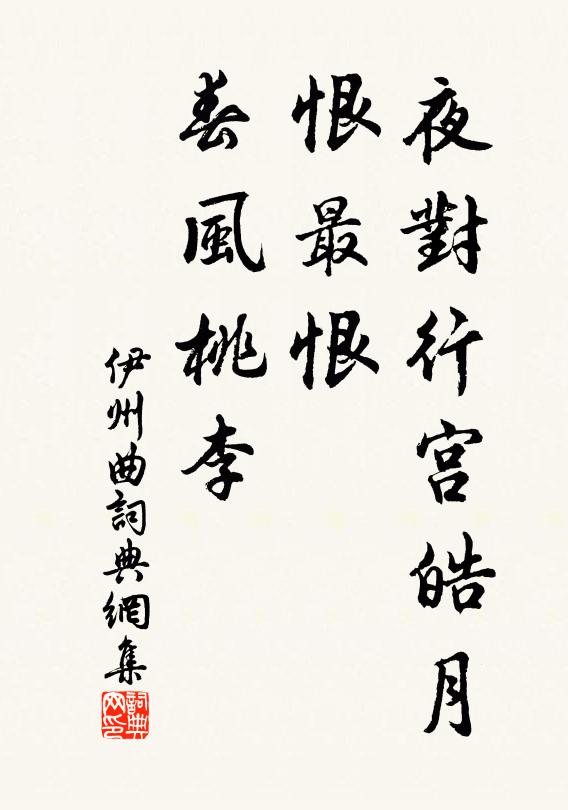 夜對行宮皓月
恨最恨
春風桃李
伊州曲詞典網集
詞典网印